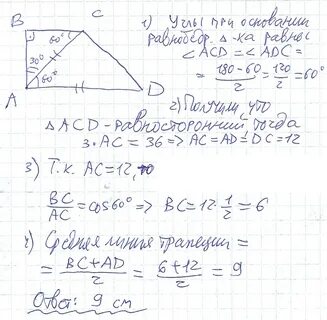 B
C
60°
30°
60°
A
D
1) Углы при основании
равнобедр. Δ-ка равны
<ACD=<ADC=
= 180-60/2 = 120/2 = 60°
2) Получим, что
ΔACD-равносторонний, тогда
3·AC = 36 => AC=AD=DC=12
3) Т.к. AC=12, то
BC/AC = cos60° => BC=12·1/2=6
4) Средняя линия трапеции =
= BC+AD/2 = 6+12/2 = 9
Ответ: 9 см